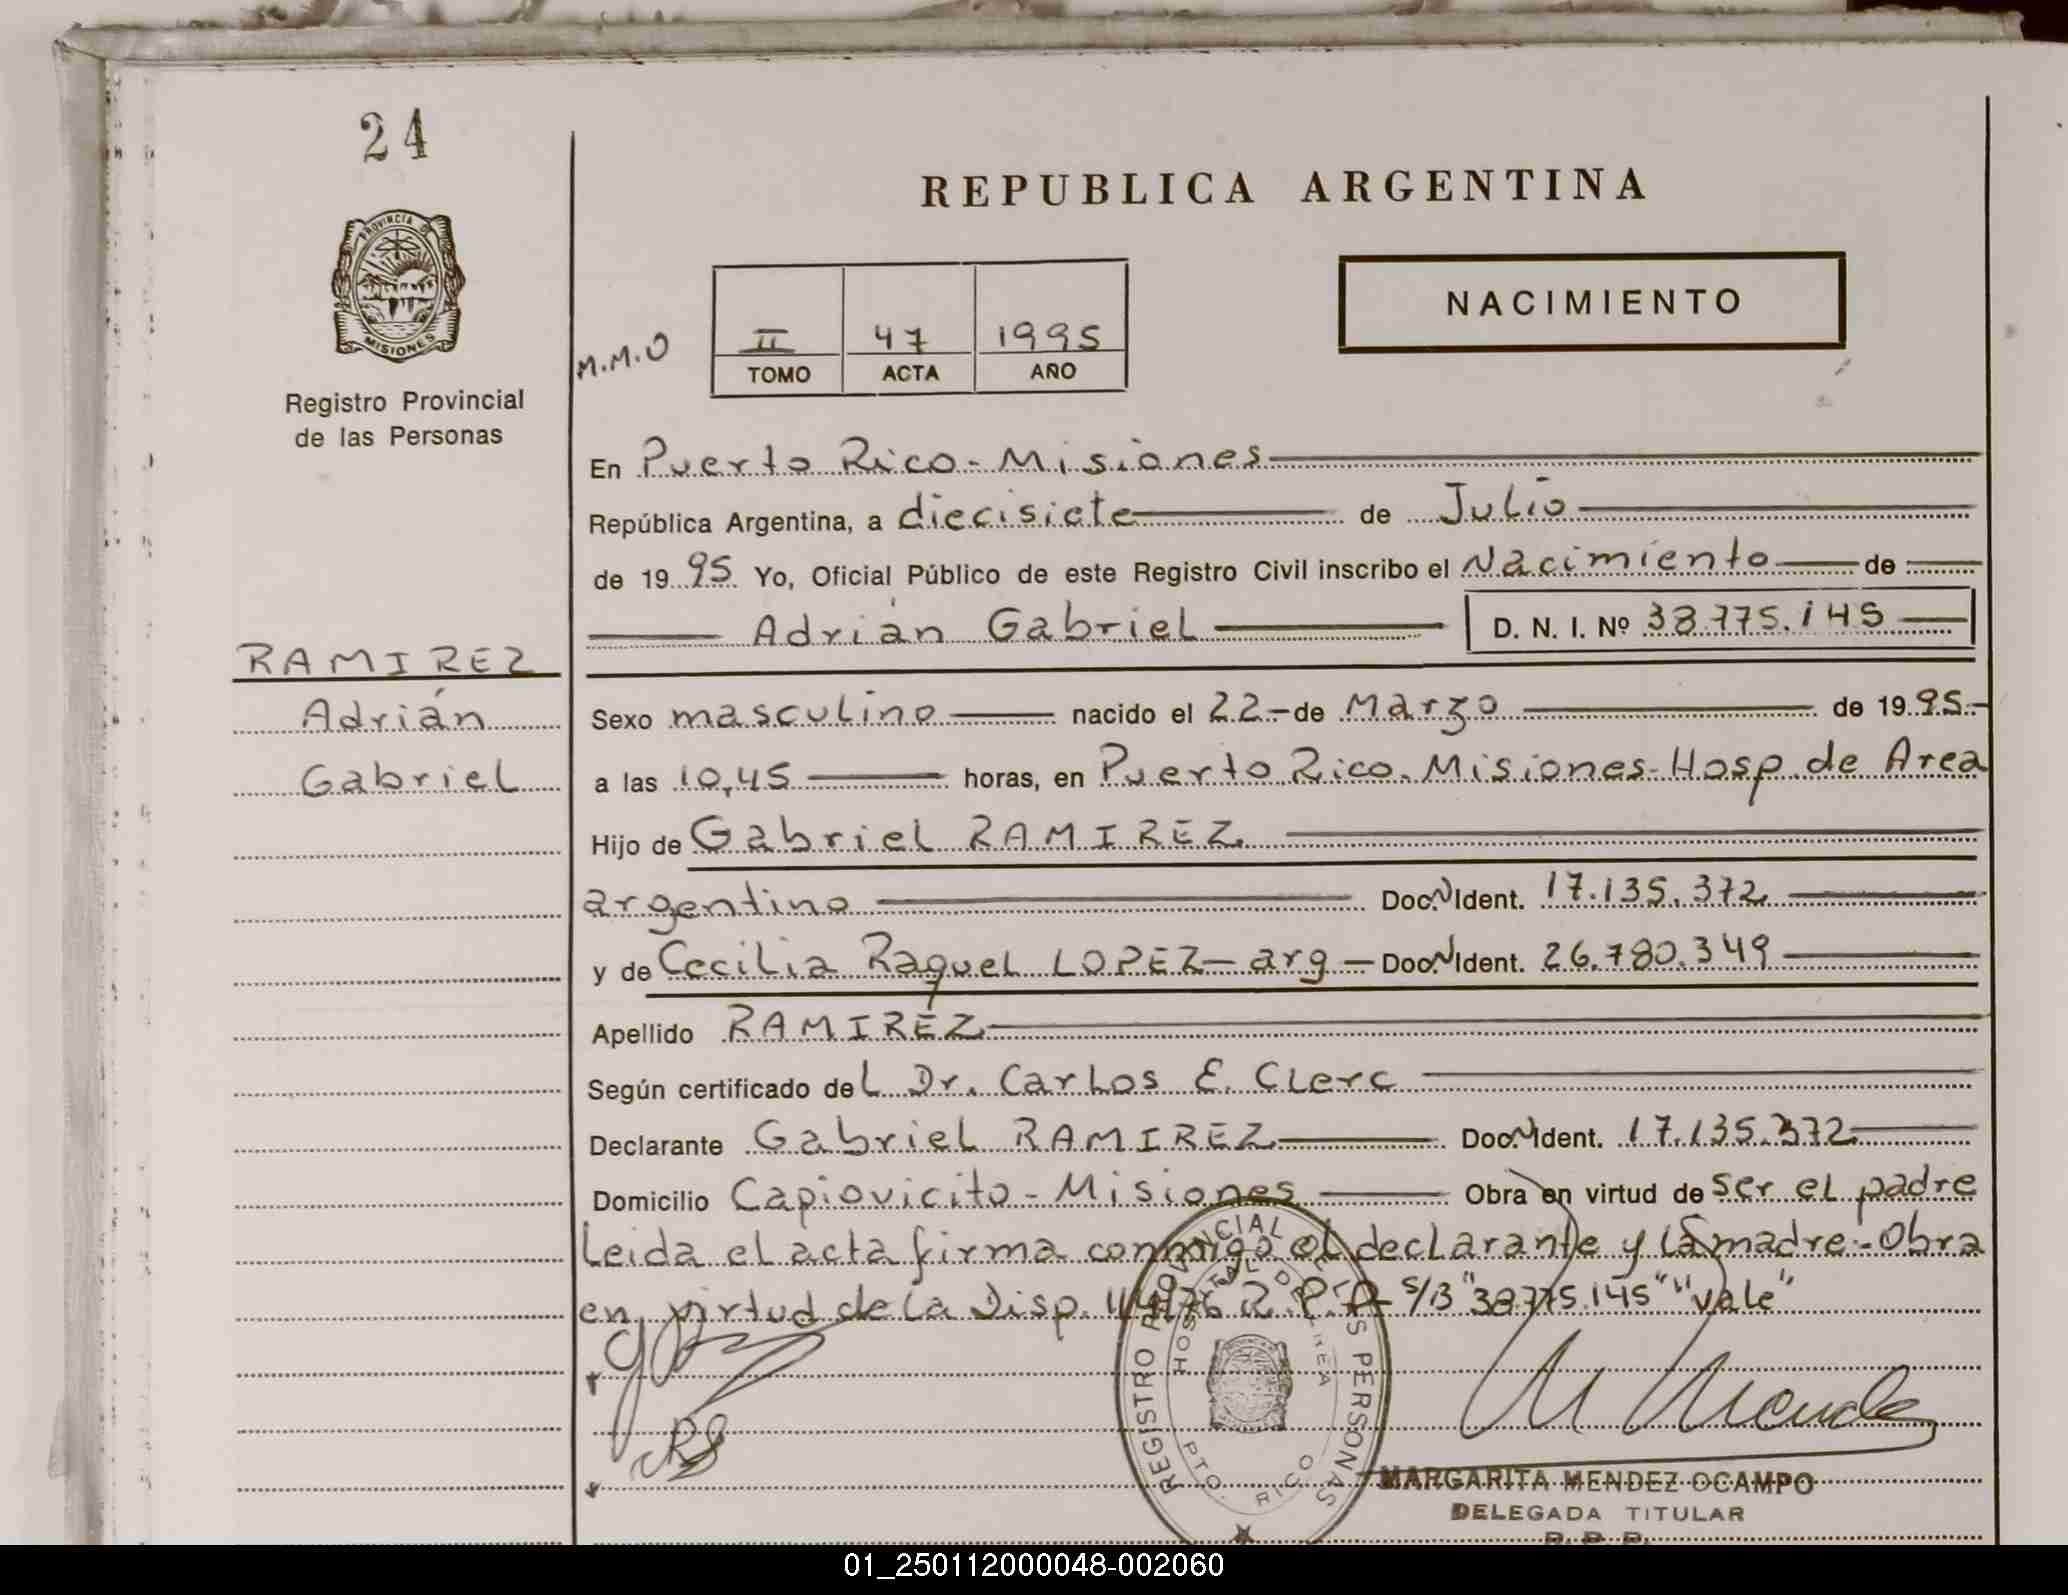 24
REPUBLICA ARGENTINA
PROVINCIA DE
MISIONES
Registro Provincial
de las Personas
M.M.O
II 47 1995
TOMO ACTA AÑO
NACIMIENTO
En Puerto Rico - Misiones
República Argentina, a diecisiete de Julio
de 1995 Yo, Oficial Público de este Registro Civil inscribo el Nacimiento de
Adrián Gabriel D. N. I. Nº 38.775.145
RAMIREZ
Adrián
Gabriel
Sexo masculino nacido el 22 - de Marzo de 1995.-
a las 10,45 horas, en Puerto Rico. Misiones - Hosp. de Area
Hijo de Gabriel RAMIREZ
argentino Doc. N Ident. 17.135.372
y de Cecilia Raquel LOPEZ - arg - Doc. N Ident. 26.780.349
Apellido RAMIREZ
Según certificado del Dr. Carlos E. Clerc
Declarante Gabriel RAMIREZ Doc. N Ident. 17.135.372
Domicilio Capiovicito - Misiones Obra en virtud de ser el padre
Leida el acta firma conmigo el declarante y la madre.- Obra
en virtud de la Disp. R.P.P. s/B "38.775.145" "vale"
REGISTRO PROVINCIAL DE LAS PERSONAS
HOSPITAL DE AREA
PTO. RICO
MARGARITA MENDEZ OCAMPO
DELEGADA TITULAR
R. P. P.
01_250112000048-002060